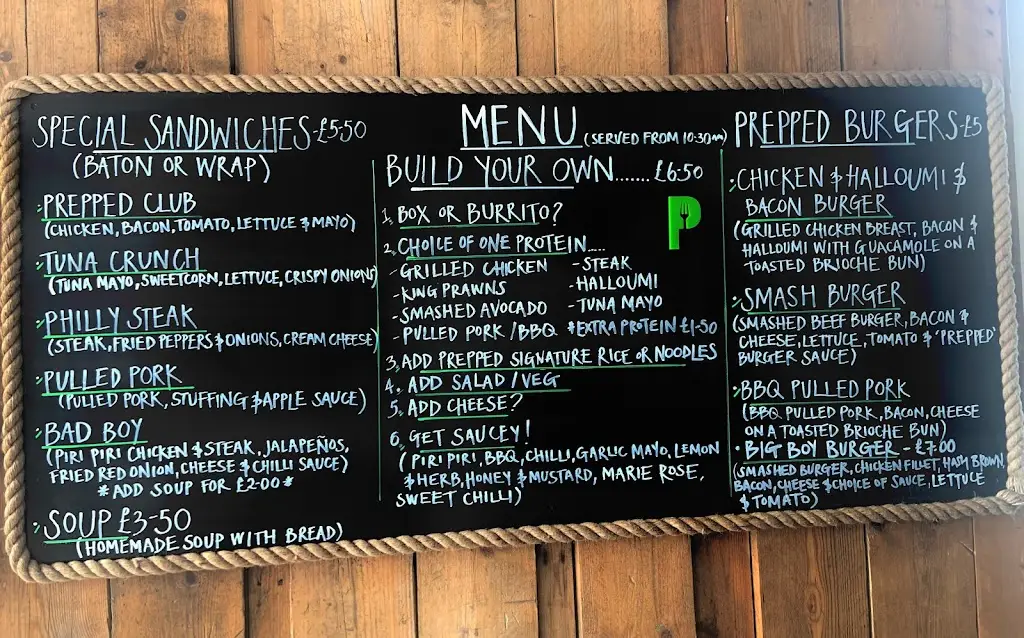 SPECIAL SANDWICHES-£5-50
(BATON OR WRAP)
PREPPED CLUB
(CHICKEN, BACON, TOMATO, LETTUCE & MAYO)
TUNA CRUNCH
(TUNA MAYO, SWEETCORN, LETTUCE, CRISPY ONIONS)
PHILLY STEAK
(STEAK, FRIED PEPPERS & ONIONS, CREAM CHEESE)
PULLED PORK
(PULLED PORK, STUFFING & APPLE SAUCE)
BAD BOY
(PIRI PIRI CHICKEN & STEAK, JALAPEÑOS,
FRIED RED ONION, CHEESE & CHILLI SAUCE)
*ADD SOUP FOR £2-00*
SOUP £3-50
(HOMEMADE SOUP WITH BREAD)
MENU (SERVED FROM 10:30am)
BUILD YOUR OWN....... £6-50
P
1, BOX OR BURRITO?
2, CHOICE OF ONE PROTEIN.....
-GRILLED CHICKEN -STEAK
-KING PRAWNS -HALLOUMI
-SMASHED AVOCADO -TUNA MAYO
-PULLED PORK/BBQ *EXTRA PROTEIN £1-50
3, ADD PREPPED SIGNATURE RICE OR NOODLES
4, ADD SALAD/VEG
5, ADD CHEESE?
6, GET SAUCEY!
(PIRI PIRI, BBQ, CHILLI, GARLIC MAYO, LEMON
& HERB, HONEY & MUSTARD, MARIE ROSE,
SWEET CHILLI)
PREPPED BURGERS-£5
CHICKEN & HALLOUMI &
BACON BURGER
(GRILLED CHICKEN BREAST, BACON &
HALLOUMI WITH GUACAMOLE ON A
TOASTED BRIOCHE BUN)
SMASH BURGER
(SMASHED BEEF BURGER, BACON &
CHEESE, LETTUCE, TOMATO & 'PREPPED'
BURGER SAUCE)
BBQ PULLED PORK
(BBQ PULLED PORK, BACON, CHEESE
ON A TOASTED BRIOCHE BUN)
• BIG BOY BURGER - £7.00
(SMASHED BURGER, CHICKEN FILLET, HASH BROWN,
BACON, CHEESE & CHOICE OF SAUCE, LETTUCE
& TOMATO)